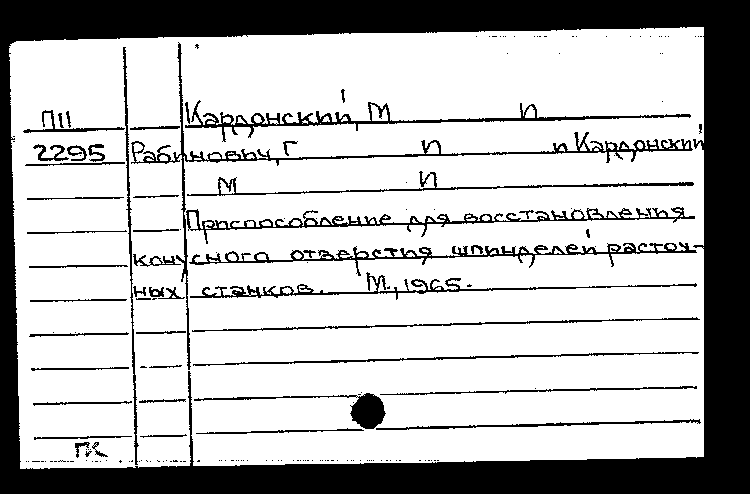 П11 Кардонский, М И
2295 Рабинович, Г И и Кардонский
М И
Приспособление для восстановления
конусного отверстия шпинделей расточ-
ных станков. М., 1965.
ПК